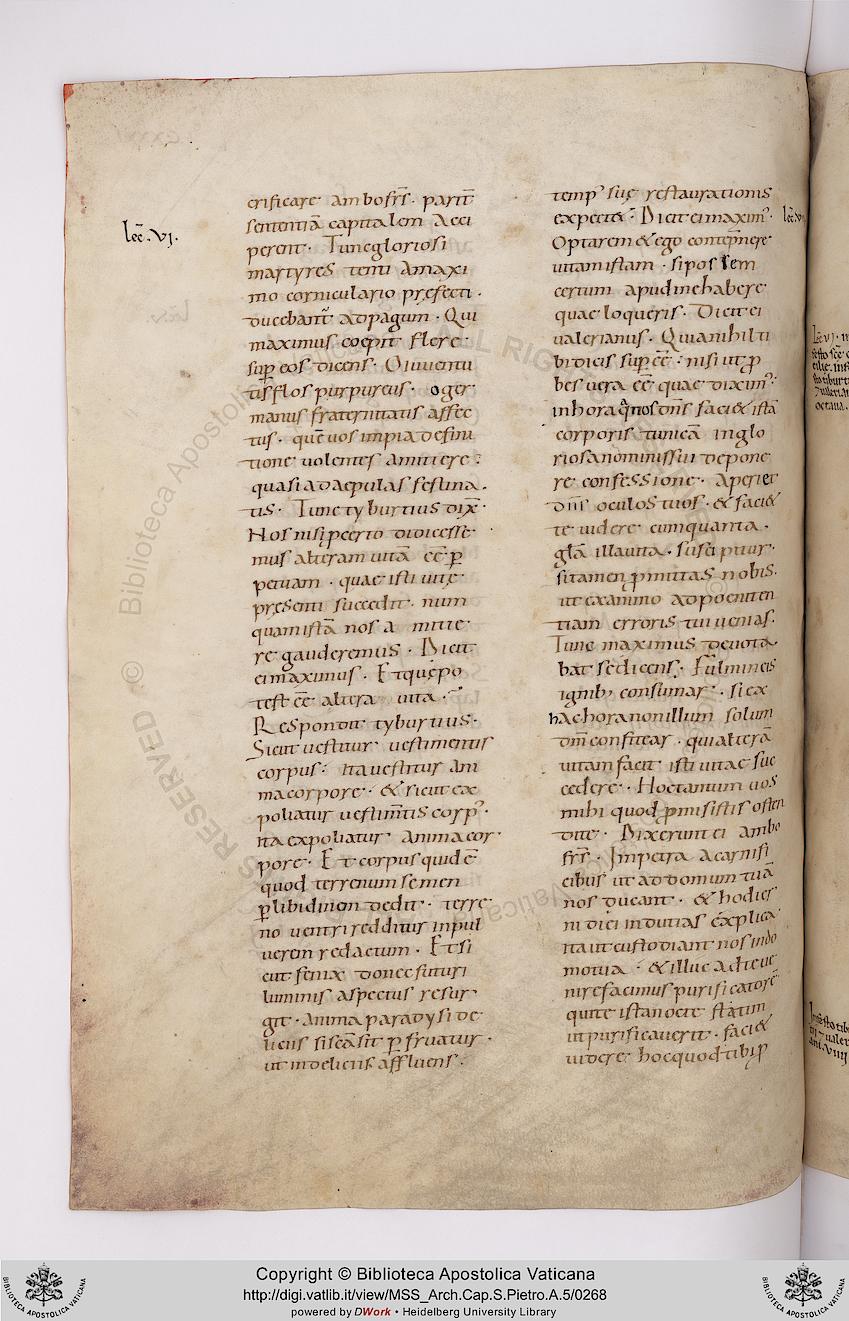 lec̄ .VJ.
crificare· ambo fr̄s· parit̄
sententiā capitalem acci
perent· Tunc gloriosi
martyres tenti a maxi
mo corniculario prefecti·
ducebant̄ ad pagum· Qui
maximus coepit flere·
sup̄ eos dicens· O iuventu
tis flos purpureus· o ger
manus fraternitatis affec
tus· quē uos impia defini
tione uolentes amittere·
quasi ad aepulas festina·
tis· Tunc tyburtius dix̄·
Nos nisi p certo didicisse
mus alteram uitā ēē p̄
petuam· quae isti uitę
presenti succedit· num
quam istā nos amitte
re gauderemus· Dicit
ei maximus· Et quę po
test ēē altera uita·
Respondit tyburtius·
Sicut uestitur uestimentis
corpus· ita uestitur ani
ma corpore· & sicut ex
poliatur uestim̄tis corp᾽·
ita expoliatur anima cor·
pore· Et corpus quidē
quod terrenum semen
p̄ libidinem dedit· terre
no uentri redditur in pul
uerem redactum· Et si
cut fenix donec futuri
luminis aspectus resur
git· anima paradysi de
liciis si scā sit p̄fruatur·
ut in deliciis affluens·
temp᾽ suę restaurationis
expectet· Dicit ei maxim᾽·
Optarem & ego contēpnere
uitam istam· si possem
certum apud me habere
quae loqueris· Dicit ei
ualerianus· Quia nihil ti
bi dicis sup̄ēē· nisi ut p̄
bes uera ēē quae dixim᾽·
in hora q̄ nos dn̄s faci& istā
corporis tunicā in glo
riosa nominis sui depone
re confessione· aperiet
dn̄s oculos tuos· & faci&
te uidere cum quanta·
glā illa uita· suscipitur·
si tamen pmittas nobis·
ut ex animo ad poeniten
tiam erroris tui uenias·
Tunc maximus deuota
bat se dicens· Fulmineis
ignib; consumar· si ex
hac hora non illum solum
dm̄ confitear· qui alterā
uitam facit isti uitae suc
cedere· Hoc tantum uos
mihi quod pmisistis osten
dite· Dixerunt ei ambo
fr̄s· Impetra a carnifi
cibus ut ad domum tuā
nos ducant· & hodier
ni diei indutias explica·
ita ut custodiant nos in do
mo tua· & illuc ad te ue
nire facimus purificatorē
qui te ista nocte statim
ut purificauerit· faci&
uidere hoc quod tibi p̄
Copyright © Biblioteca Apostolica Vaticana
http://digi.vatlib.it/view/MSS_Arch.Cap.S.Pietro.A.5/0268
powered by DWork • Heidelberg University Library